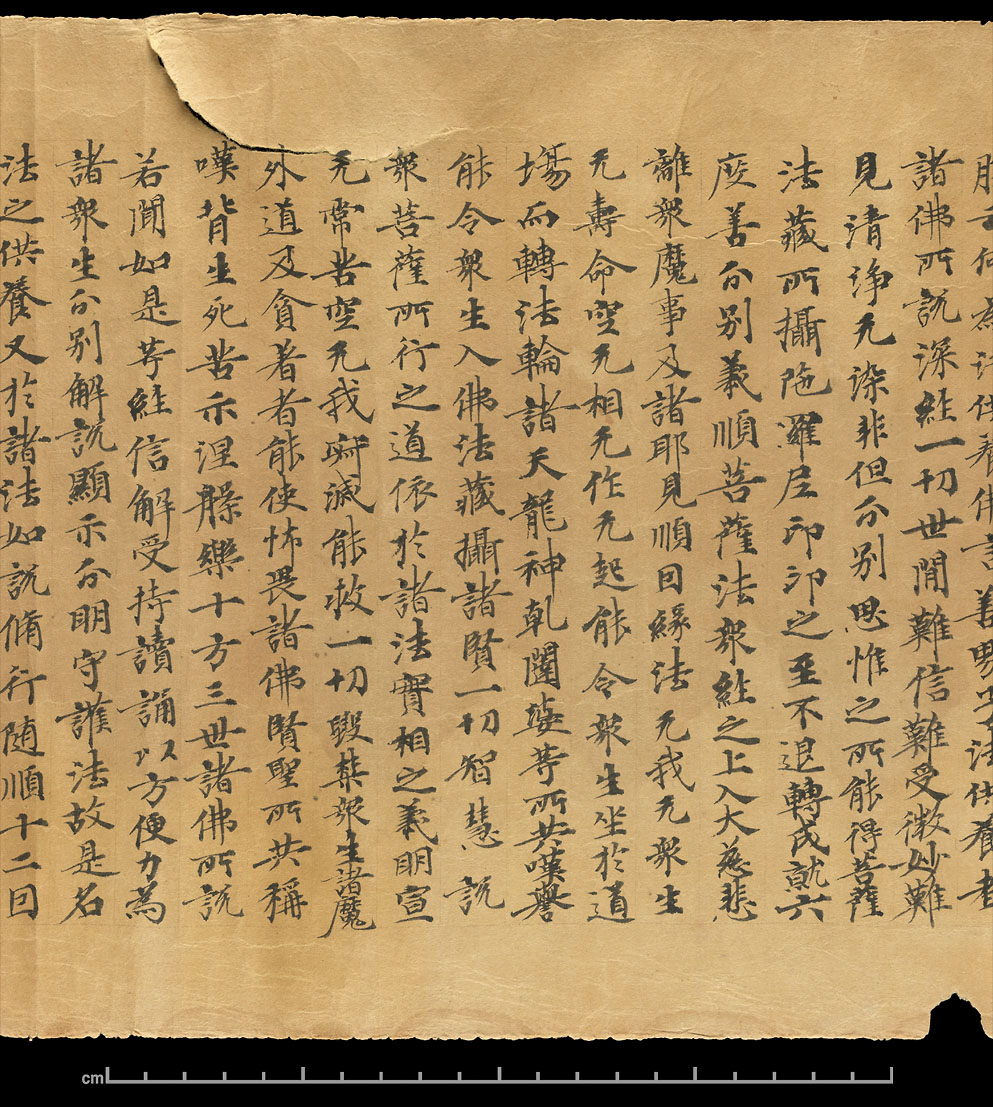 云何為法供養佛言善男子法供養者
諸佛所説深経一切世間難信難受微妙難
見清淨无染非但分別思惟之所能得菩薩
法藏所攝陁羅尼印印之至不退轉成就六
度善分別義順菩薩法衆経之上入大慈悲
離衆魔事及諸耶見順因緣法无我无衆生
无壽命空无相无作无起能令衆生坐於道
塲而轉法輪諸天龍神乹闥婆等所共嘆譽
能令衆生入佛法藏攝諸賢一切智慧説
衆菩薩所行之道依於諸法實相之義明宣
无常苦空无我寂滅能救一切毀禁衆生諸魔
外道及貪著者能使怖畏諸佛賢聖所共稱
嘆背生死苦示涅槃樂十方三世諸佛所説
若聞如是等経信解受持讀誦以方便力為
諸衆生分別解説顯示分明守護法故是名
法之供養又於諸法如説脩行随順十二因
cm